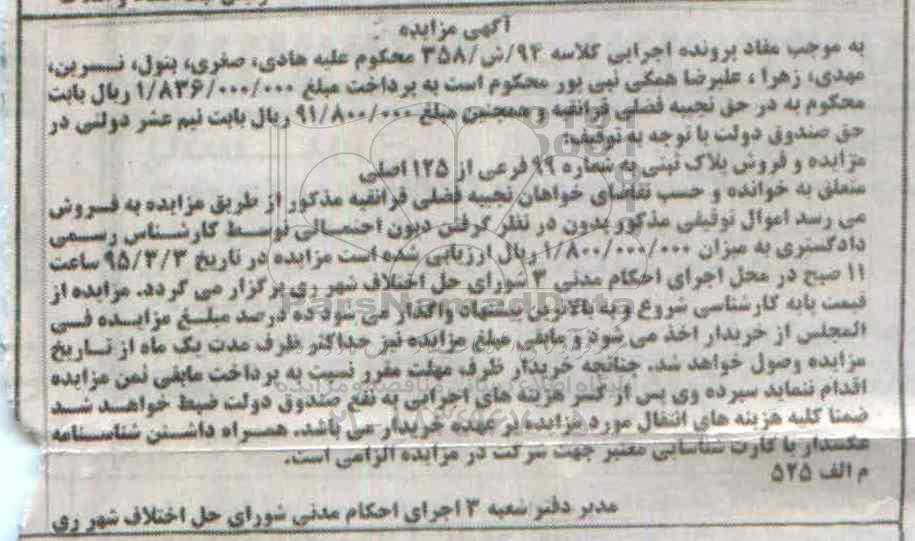 آگهی مزایده
به موجب مفاد پرونده اجرایی کلاسه ۹۴/ش/۳۵۸ محکوم علیه هادی، صغری، بتول، نسرین،
مهدی، زهرا ، علیرضا همگی نبی پور محکوم است به پرداخت مبلغ ۱/۸۳۶/۰۰۰/۰۰۰ ریال بابت
محکوم به در حق نجیبه فضلی فرانقیه و همچنین مبلغ ۹۱/۸۰۰/۰۰۰ ریال بابت نیم عشر دولتی در
حق صندوق دولت با توجه به توقیف.
مزایده و فروش پلاک ثبتی به شماره ۹۹ فرعی از ۱۲۵ اصلی
متعلق به خوانده و حسب تقاضای خواهان نجیبه فضلی فرانقیه مذکور از طریق مزایده به فروش
می رسد اموال توقیفی مذکور بدون در نظر گرفتن دیون احتمالی توسط کارشناس رسمی
دادگستری به میزان ۱/۸۰۰/۰۰۰/۰۰۰ ریال ارزیابی شده است مزایده در تاریخ ۹۵/۳/۳ ساعت
۱۱ صبح در محل اجرای احکام مدنی ۳ شورای حل اختلاف شهر ری برگزار می گردد. مزایده از
قیمت پایه کارشناسی شروع و به بالاترین پیشنهاد واگذار می شود ده درصد مبلغ مزایده فی
المجلس از خریدار اخذ می شود و مابقی مبلغ مزایده نیز حداکثر ظرف مدت یک ماه از تاریخ
مزایده وصول خواهد شد. چنانچه خریدار ظرف مهلت مقرر نسبت به پرداخت مابقی ثمن مزایده
اقدام ننماید سپرده وی پس از کسر هزینه های اجرایی به نفع صندوق دولت ضبط خواهد شد
ضمنا کلیه هزینه های انتقال مورد مزایده بر عهده خریدار می باشد. همراه داشتن شناسنامه
عکسدار یا کارت شناسایی معتبر جهت شرکت در مزایده الزامی است.
م الف ۵۲۵
مدیر دفتر شعبه ۳ اجرای احکام مدنی شورای حل اختلاف شهر ری
ParsNamadData